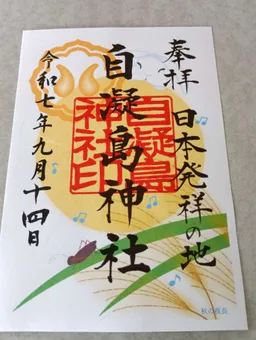 奉拝
日本発祥の地
自凝島神社
自凝島
神社印
令和七年九月十四日
秋の夜長